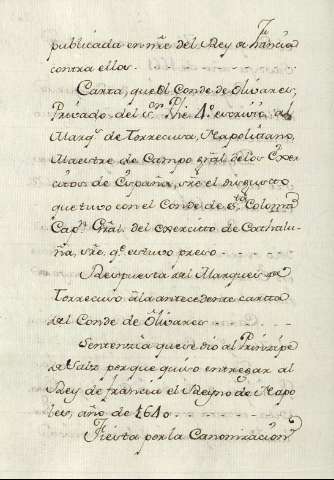 publicada en nre del Rey de francia
contra ellos.
Carta, que el Conde de Olivares,
Privado del sor Phe. 4º escrivió al
Marqs de Torrecusa, Napolitano,
Maestre de Campo gral de los Exer
citos de España, sre el disgusto
que tuvo con el Conde de Sta Coloma
Capn Gral del exercito de Cathalu-
ña, sre qe estuvo preso.
Respuesta del Marques de
Torrecuso a la antecedente carta
del Conde de Olivares
Sentenzia que se dio al Prinzipe
de Sanz porque quiso entregar al
Rey de francia el Reyno de Napo
les, año de 1640
Fiesta por la Canonizacion